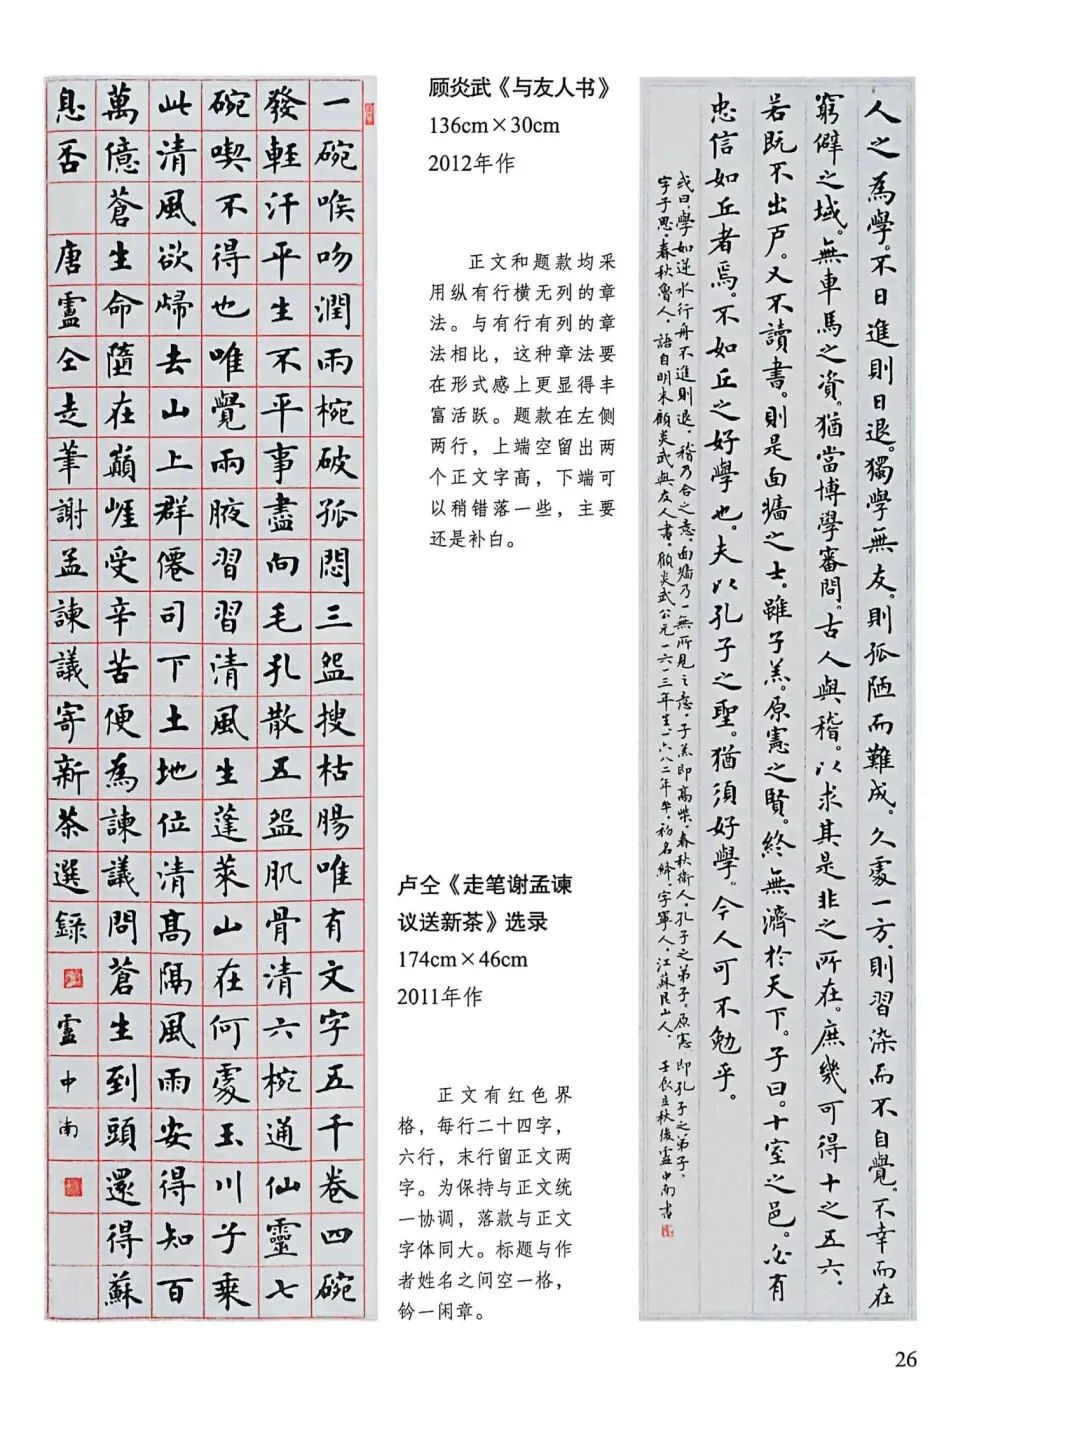 一碗喉吻潤兩椀破孤悶三盌搜枯腸唯有文字五千卷四碗
發輕汗平生不平事盡向毛孔散五盌肌骨清六椀通仙靈七
碗喫不得也唯覺兩腋習習清風生蓬萊山在何處玉川子乘
此清風欲歸去山上群僊司下土地位清髙隔風雨安得知百
萬億蒼生命隨在巔崖受辛苦便為諫議問蒼生到頭還得蘇
息否 唐盧仝走筆謝孟諫議寄新茶選錄 盧中南
顾炎武《与友人书》
136cm×30cm
2012年作
正文和题款均采
用纵有行横无列的章
法。与有行有列的章
法相比，这种章法要
在形式感上更显得丰
富活跃。题款在左侧
两行，上端空留出两
个正文字高，下端可
以稍错落一些，主要
还是补白。
卢仝《走笔谢孟谏
议送新茶》选录
174cm×46cm
2011年作
正文有红色界
格，每行二十四字，
六行，末行留正文两
字。为保持与正文统
一协调，落款与正文
字体同大。标题与作
者姓名之间空一格，
钤一闲章。
人之為學。不日進則日退。獨學無友。則孤陋而難成。久處一方。則習染而不自覺。不幸而在
窮僻之域。無車馬之資。猶當博學審問。古人與稽。以求其是非之所在。庶幾可得十之五六。
若既不出戶。又不讀書。則是面牆之士。雖子羔。原憲之賢。終無濟於天下。子曰。十室之邑。必有
忠信如丘者焉。不如丘之好學也。夫以孔子之聖。猶須好學。今人可不勉乎。
或曰，學如逆水行舟不進則退，稽乃合之意，面牆乃一無所見之意，子羔即高柴，春秋衛人，孔子之弟子。原憲即孔子之弟子。
字子思，春秋魯人，語自明末顧炎武與友人書，顧炎武公元一六一三年生，一六八二年卒，初名絳，字寧人，江蘇昆山人。 壬辰立秋後盧中南書
26